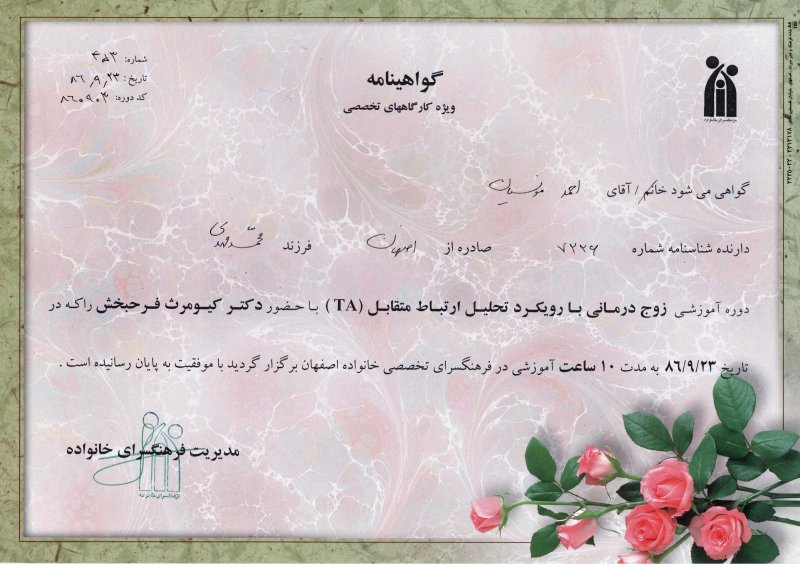 شماره: ۴۵۳
تاریخ: ۸۶٫۹٫۲۳
کد دوره: ۸۶۰۹۰۳
گواهینامه
ویژه کارگاههای تخصصی
فرهنگسرای خانواده
گواهی می شود خانم/ آقای احمد مونسیان
دارنده شناسنامه شماره ۷۲۲۶ صادره از اصفهان فرزند محمّدمهدی
دوره آموزشی زوج درمانی با رویکرد تحلیل ارتباط متقابل (TA) با حضور دکتر کیومرث فرحبخش را که در
تاریخ ۸۶/۹/۲۳ به مدت ۱۰ ساعت آموزشی در فرهنگسرای تخصصی خانواده اصفهان برگزار گردید با موفقیت به پایان رسانیده است .
مدیریت فرهنگسرای خانواده
فرهنگسرای خانواده